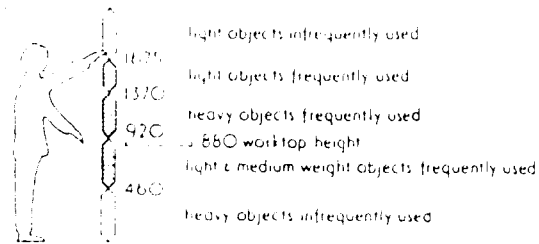 light objects infrequently used
1625
light objects frequently used
1370
heavy objects frequently used
920
880 worktop height
light & medium weight objects frequently used
460
heavy objects infrequently used